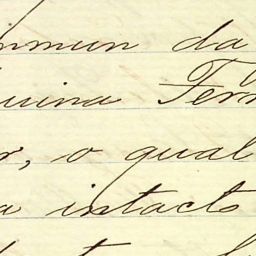 nmun da
uina Fer
r, o qual
a intacto